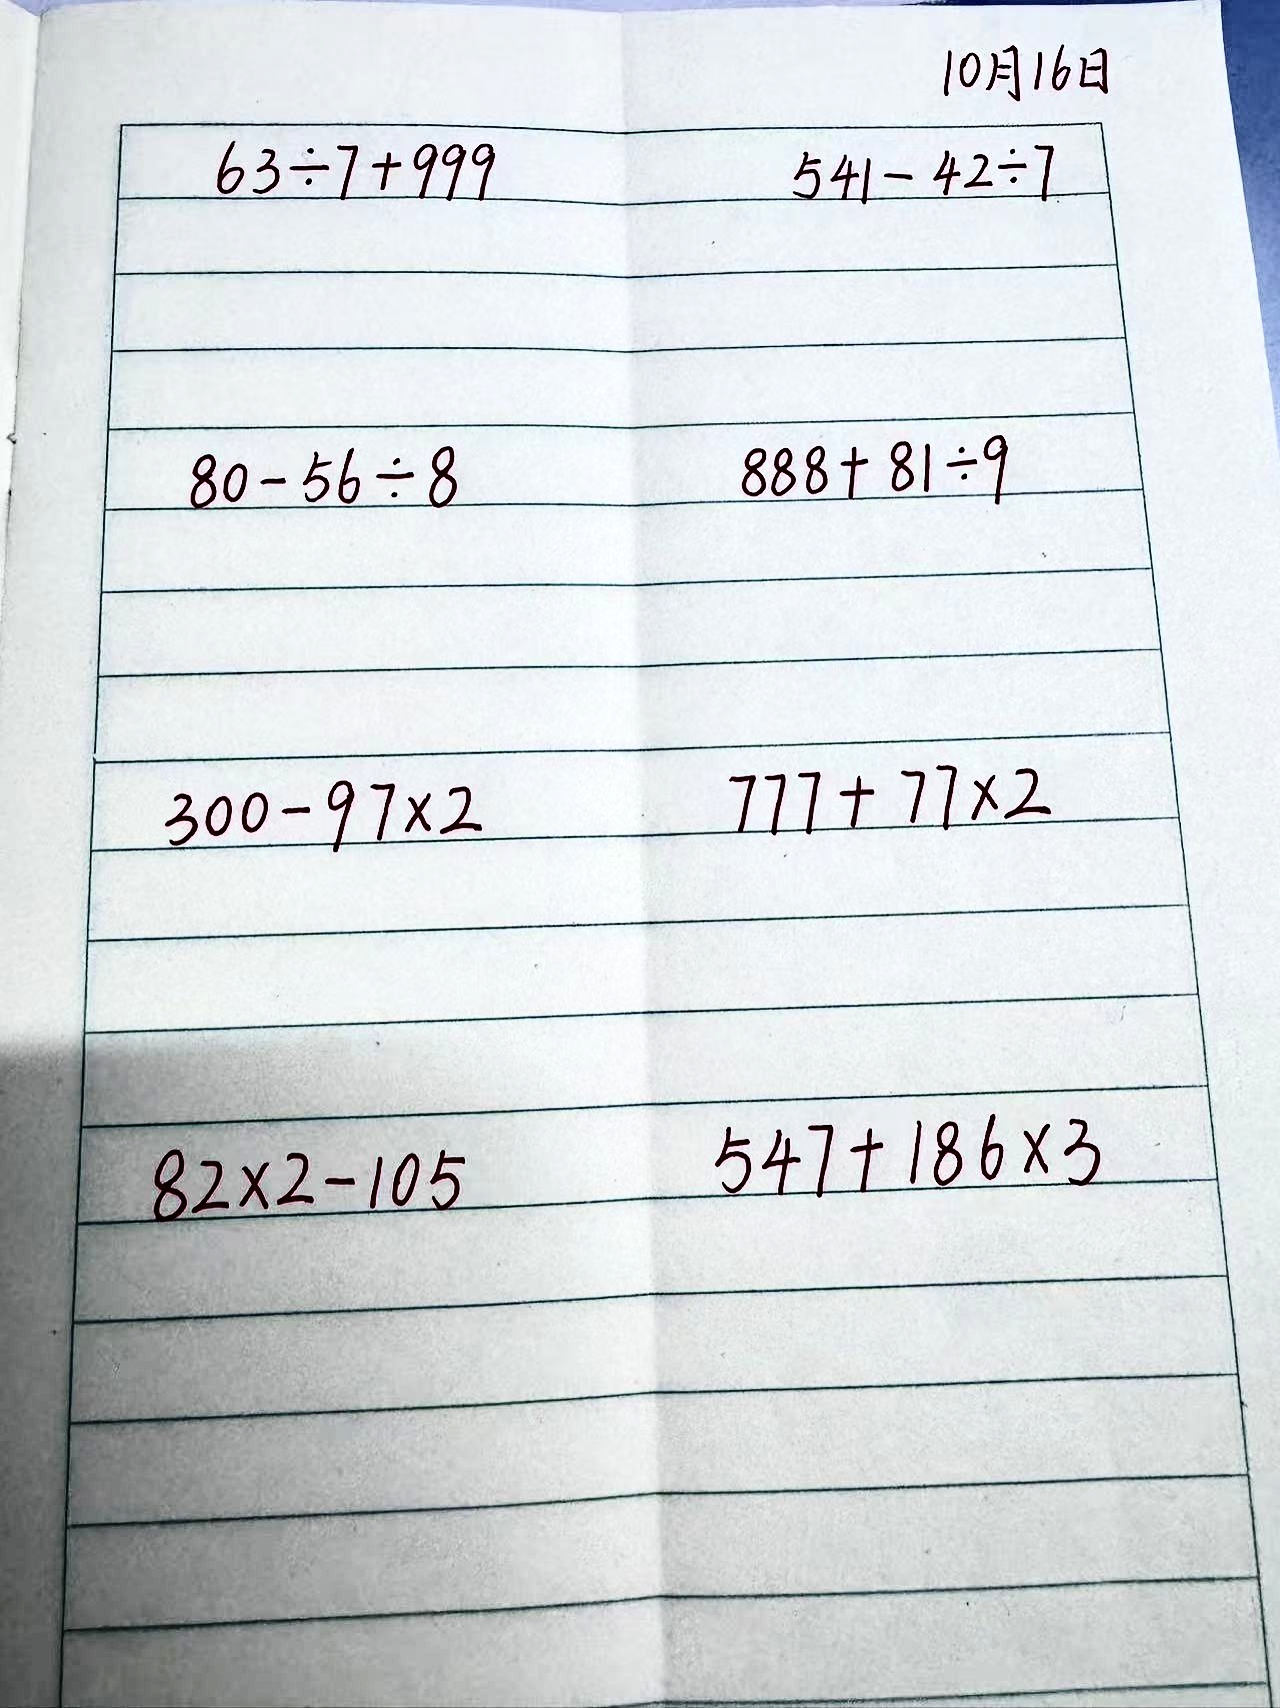 10月16日
63÷7+999 541-42÷7
80-56÷8 888+81÷9
300-97×2 777+77×2
82×2-105 547+186×3